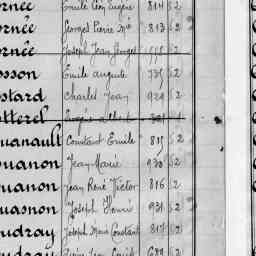 ornée Emile Léon Eugène 814 S2
ornée Georges Pierre Mie 813 S2
ornée Joseph Jean Georges S2
osson Emile auguste 735 S2
ostard Charles Jean 929 S2
otterel
ouanault Constant Emile 815 S2
ouanon Jean Marie 930 S2
ouanon Jean René Victor 816 S2
ouasnon Joseph Henri 931 S2
oudray Joseph Marie Constant 817 S2
oudray Louis 689 S2